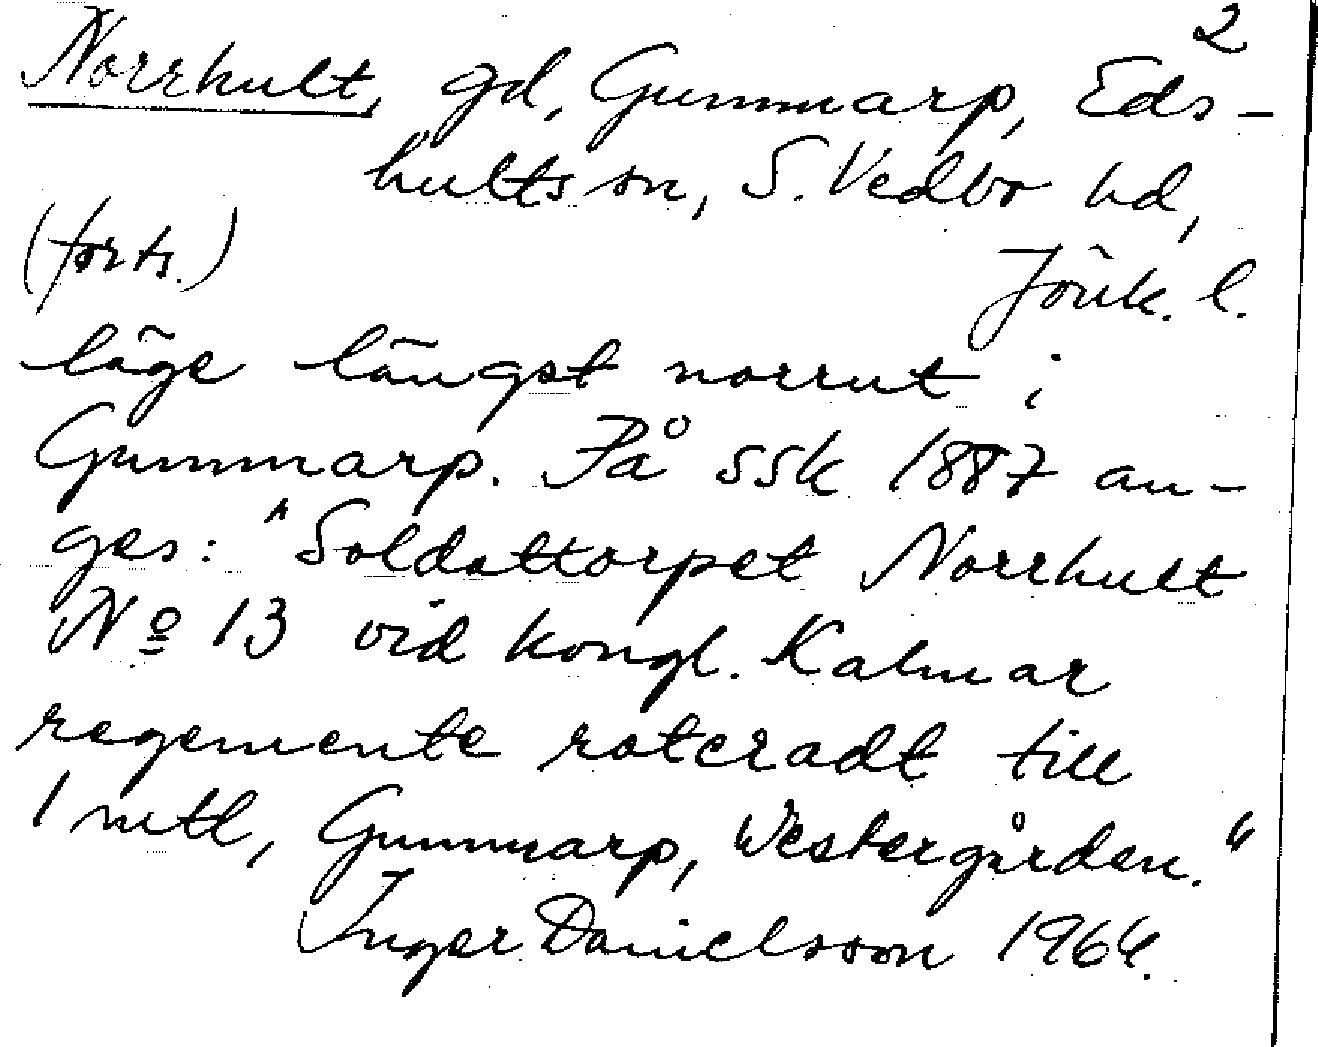 2
Norrhult, gd, Gummarp, Eds-
hults sn, S. Vedbo hd,
(forts.)
Jönk. l.
läge längst norrut i
Gummarp. På ssk 1887 an-
ges: "Soldattorpet Norrhult
No 13 vid kongl. Kalmar
regemente roteradt till
1 mtl, Gummarp, Westergården."
Inger Danielsson 1964.